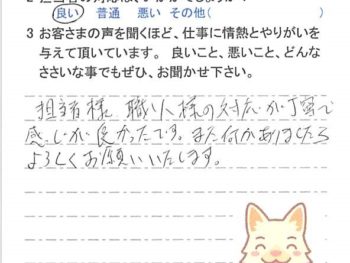 良い 普通 悪い その他( )
3 お客さまの声を聞くほど、仕事に情熱とやりがいを
与えて頂いています。 良いこと、悪いこと、どんな
ささいな事でもぜひ、お聞かせ下さい。
担当者様、職人様の対応が丁寧で
感じが良かったです。また何かありましたら
よろしくお願いいたします。